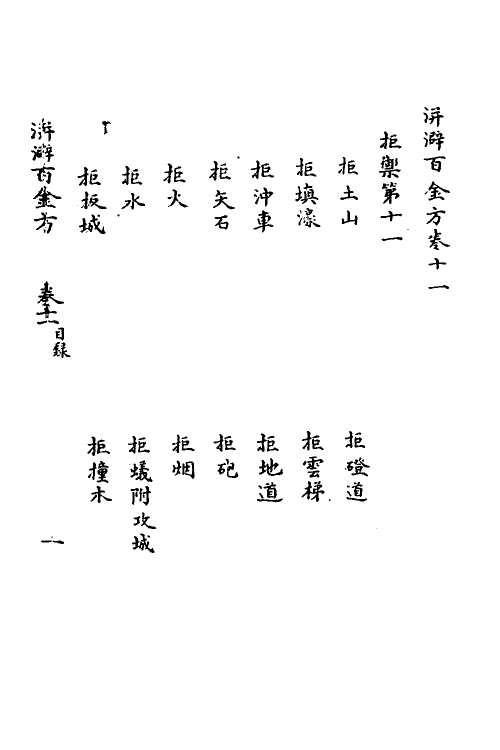 洴澼百金方卷十一
拒禦第十一
拒土山
拒磴道
拒填濠
拒雲梯
拒沖車
拒地道
拒矢石
拒砲
拒火
拒烟
拒水
拒蟻附攻城
拒扳城
拒撞木
洴澼百金方 卷十一 目録 一